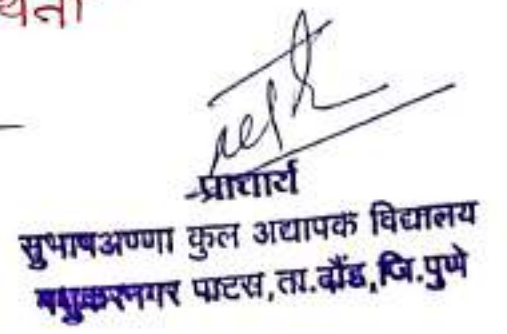 प्राचार्य
सुभाषअण्णा कुल अध्यापक विद्यालय
मधुकरनगर पाटस,ता.दौंड,जि.पुणे